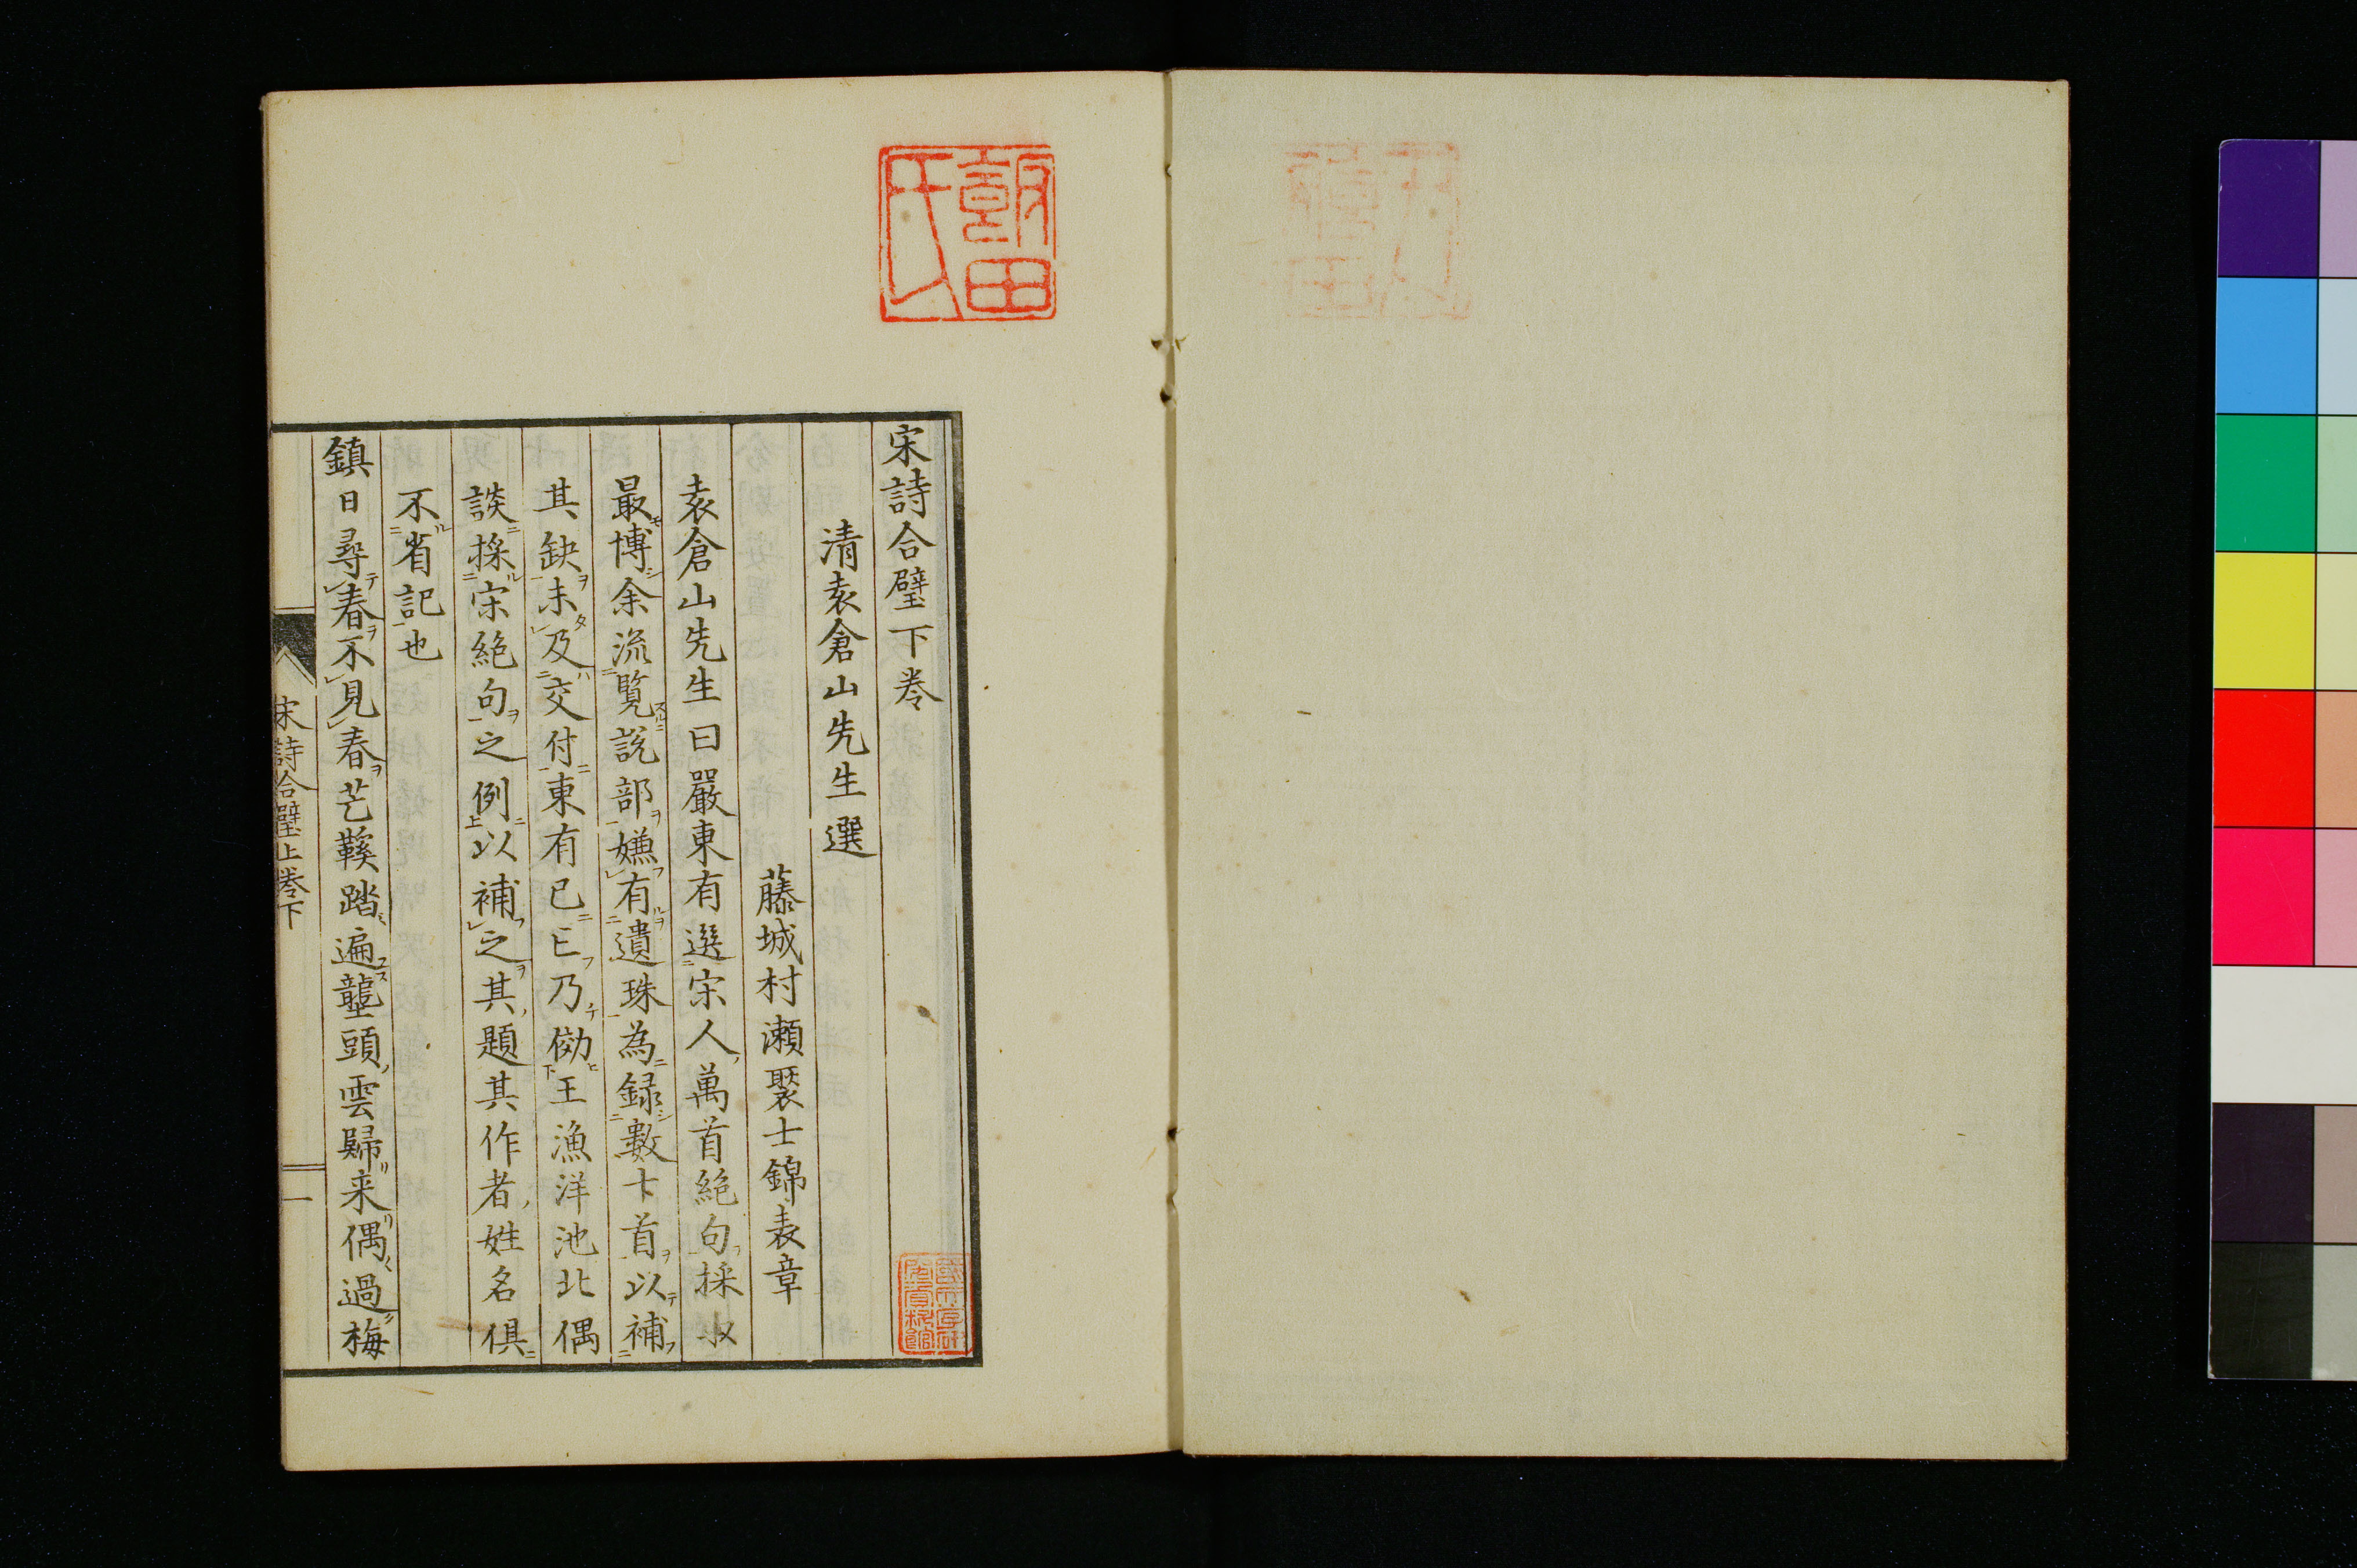 宋詩合璧下巻
清袁倉山先生選
藤城村瀬褧士錦表章
袁倉山先生曰嚴東有選宋人萬首絶句採
最博余流覧說部嫌有遺珠為録數十首以補
其缺未及交付東有已亡乃傚王漁洋池北偶
談採宋絶句之例以補之其題其作者姓名俱
不省記也
鎮日尋春不見春芒鞵踏遍壟頭雲歸来偶過梅
宋詩合璧上巻下
一
田氏